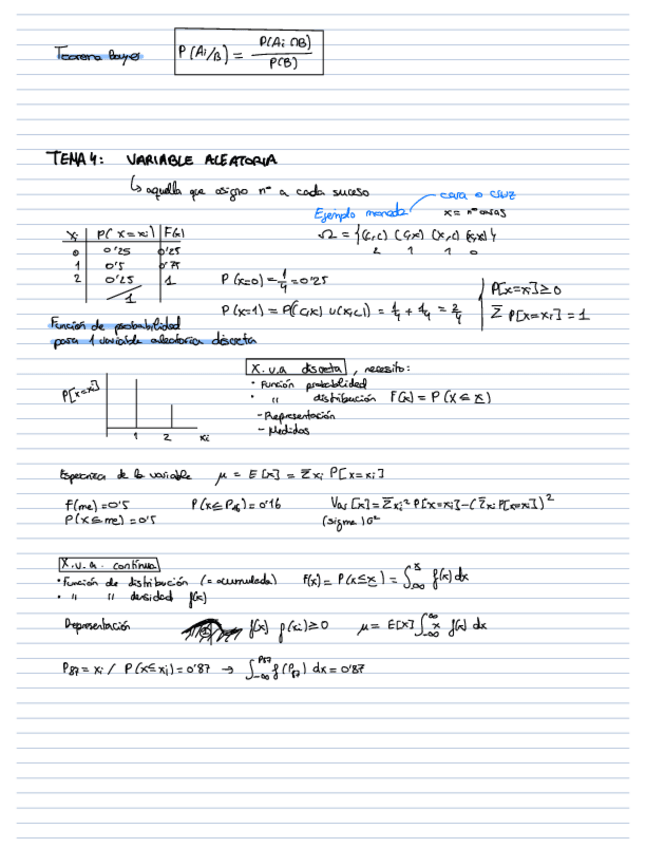 Teorema Bayes P(Ai/B) = P(Ai ∩B) / P(B)
TEMA 4: VARIABLE ALEATORIA
↳ aquella que asigna nº a cada suceso
cara o cruz
Ejemplo moneda x = nº caras
xi | P(X=xi) | F(x)
0 | 0'25 | 0'25
1 | 0'5 | 0'75
2 | 0'25 | 1
1
Ω = {(c,c) (c,x) (x,c) (x,x)}
2 1 1 0
P(x=0) = 1/4 = 0'25
P(x=1) = P((c,x) ∪ (x,c)) = 1/4 + 1/4 = 2/4
P[x=xi] ≥ 0
Σ P[x=xi] = 1
Función de probabilidad
para 1 variable aleatoria discreta
X. v.a discreta, necesito:
• Función probabilidad
• " distribución F(x) = P(X ≤ x)
- Representación
- Medidas
P[x=xi]
1 2 xi
Esperanza de la variable μ = E[x] = Σxi P[x=xi]
F(me) = 0'5 P(x ≤ P16) = 0'16 Var[x] = Σxi² P[x=xi] - (Σxi P[x=xi])²
P(x ≤ me) = 0'5 (sigma) σ²
X. v. a. continua
• Función de distribución (= acumulada) F(x) = P(X ≤ x) = ∫-∞^x f(x) dx
• " " densidad f(x)
Representación f(x) f(xi) ≥ 0 μ = E[x] ∫-∞^∞ x f(x) dx
P87 = xi / P(x ≤ xi) = 0'87 → ∫-∞^P87 f(P87) dx = 0'87